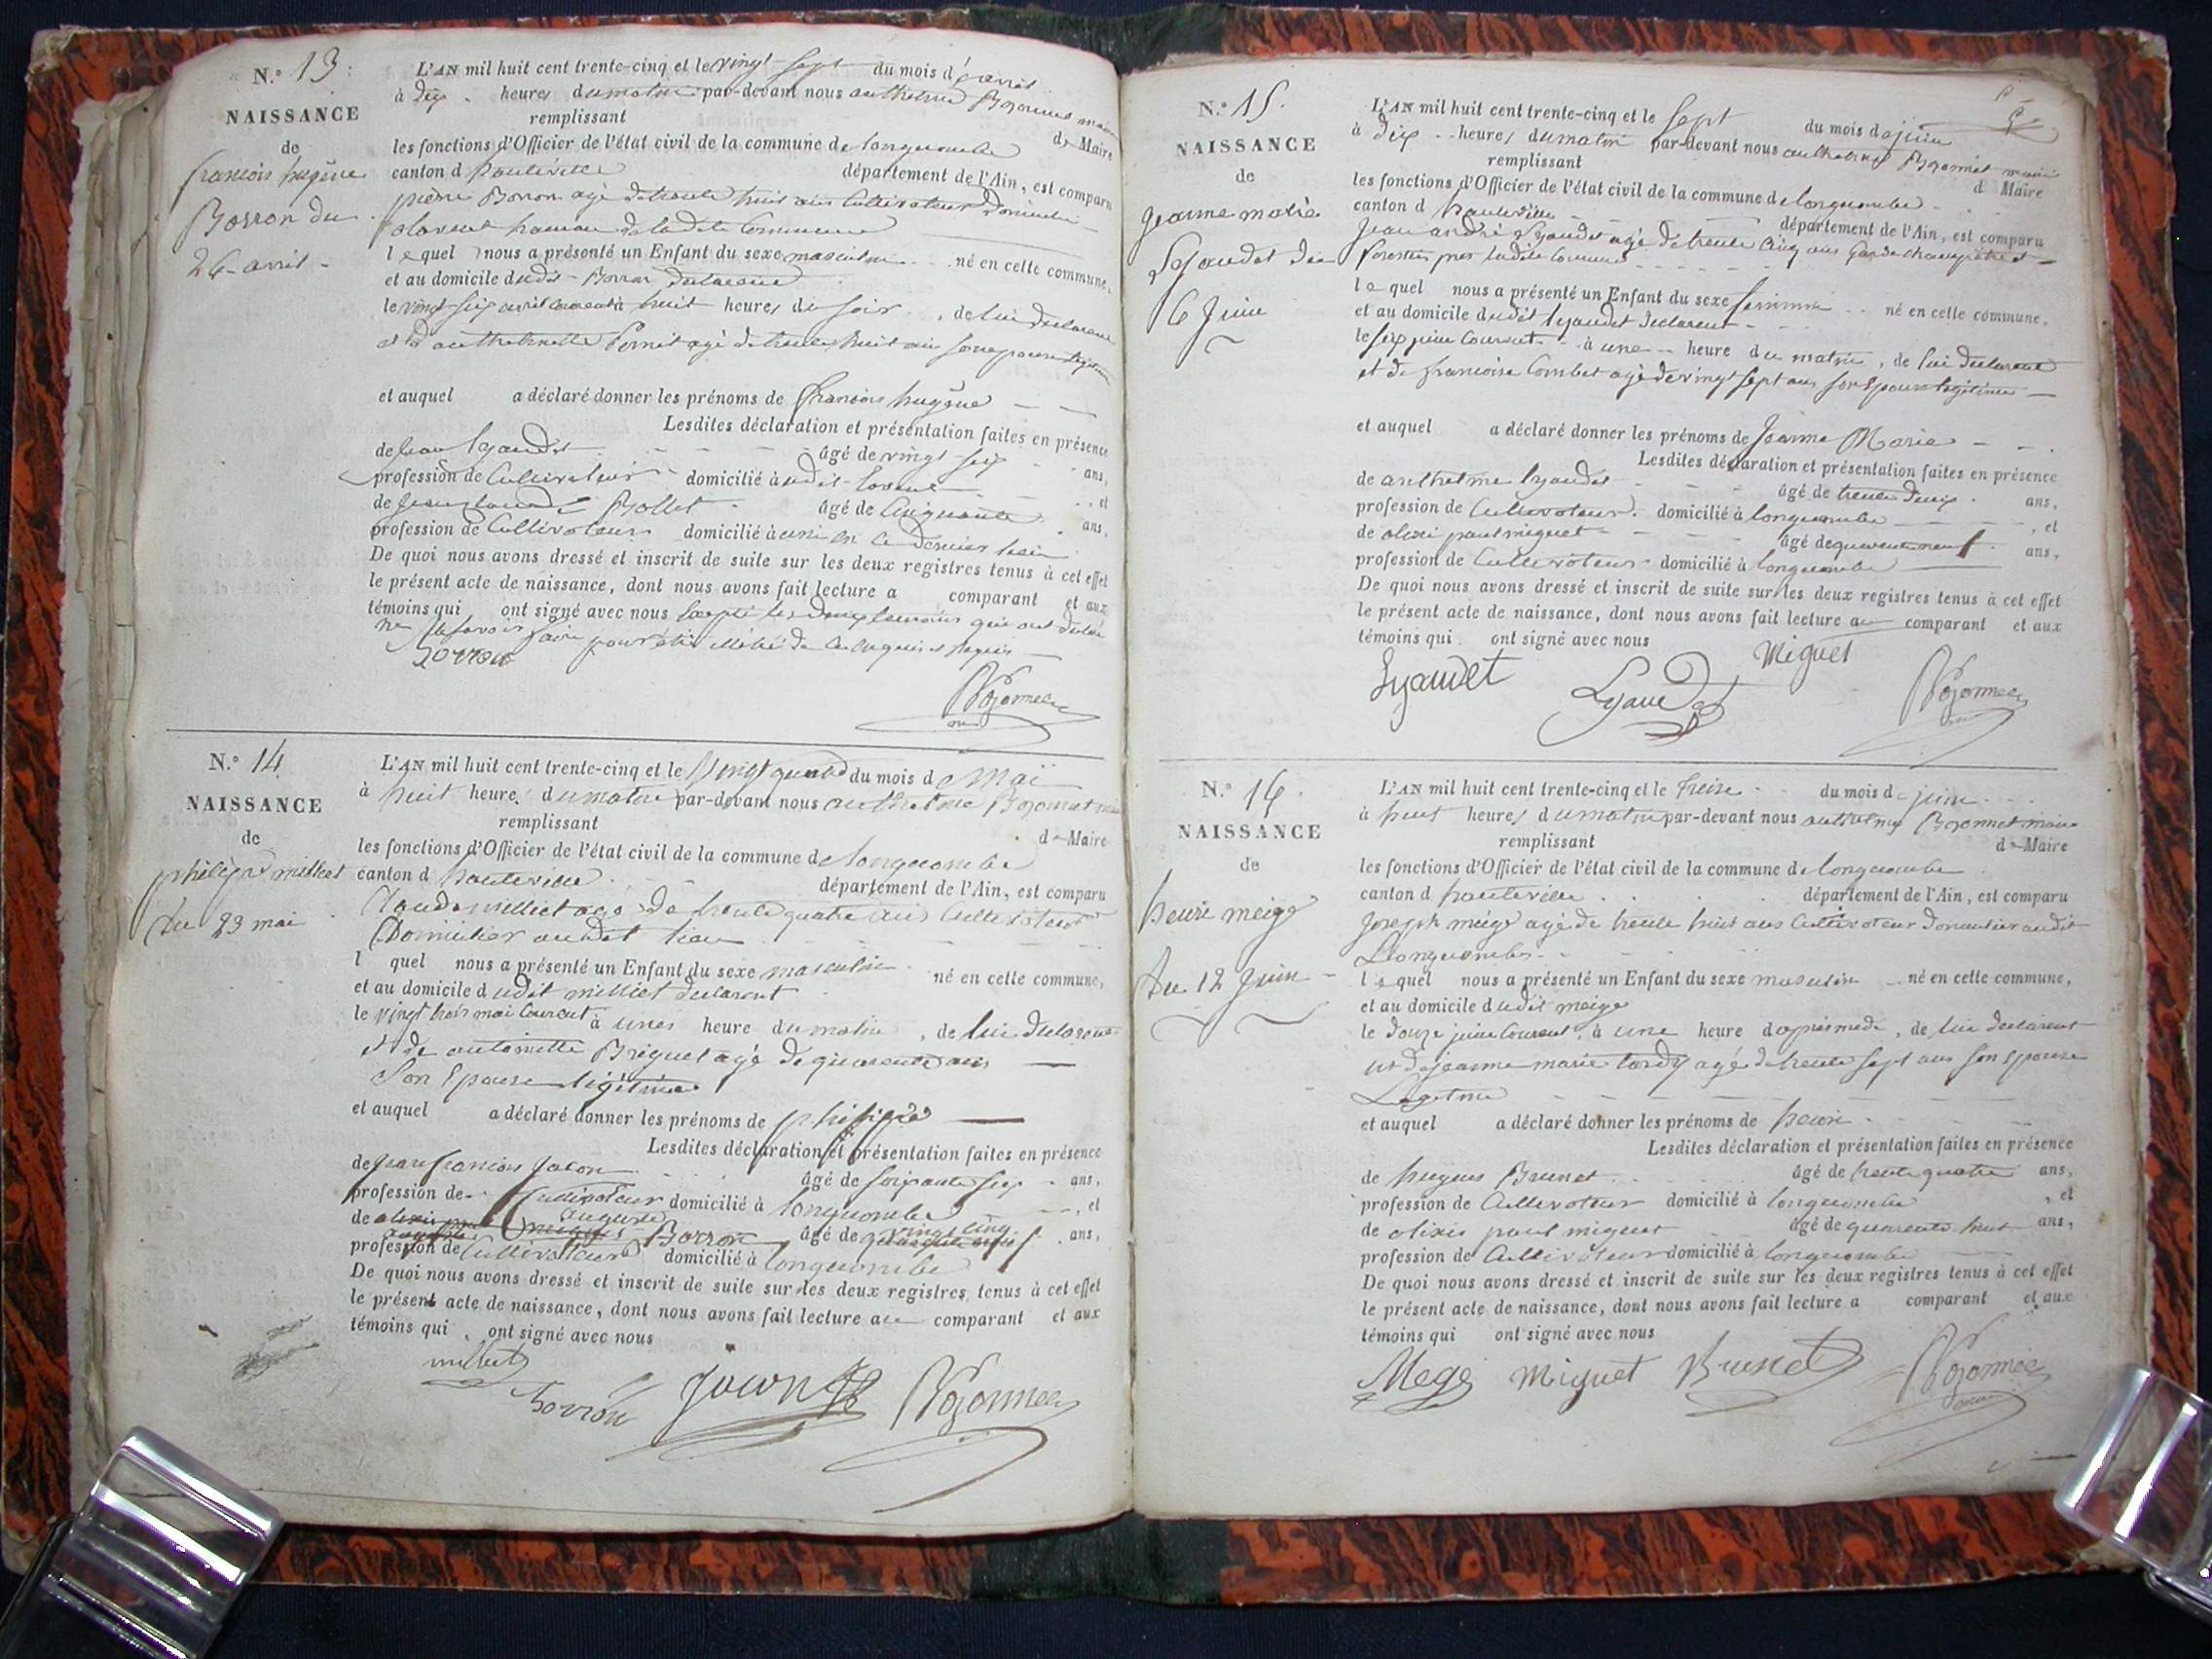 N.° 13
NAISSANCE
de
francois hugêne
Borron du
26 avril
L'AN mil huit cent trente-cinq et le vingt sept du mois d'avril
à dix heures du matin par-devant nous anthelme Bozonnet maire
remplissant
de Maire
les fonctions d'Officier de l'état civil de la commune de longecombe
canton d hauteville département de l'Ain, est comparu
pierre Borron agé de trente huit ans Cultivateur Domicilié
hameau de la dite Commune
lequel nous a présenté un Enfant du sexe masculin né en cette commune,
et au domicile dudit Borron declarant
le vingt six avril courant à huit heures du soir, de lui declarant
et d'anthelmette Pernet agé de trente huit ans son epouse legitime
et auquel a déclaré donner les prénoms de francois hugêne
Lesdites déclaration et présentation faites en présence
de jean lyaudet âgé de vingt six ans,
profession de Cultivateur domicilié audit et
de jean Rollet âgé de Cinquante ans,
profession de Cultivateur domicilié aussi en ce dernier lieu
De quoi nous avons dressé et inscrit de suite sur les deux registres tenus à cet effet
le présent acte de naissance, dont nous avons fait lecture a comparant et aux
témoins qui ont signé avec nous les deux temoins qui ont déclaré
ne le savoir faire pour être de ce requis
Borron
Bozonnet
N.° 14
NAISSANCE
de
philipe milliet
du 23 mai
L'AN mil huit cent trente-cinq et le Vingt quatre du mois de Mai
à huit heures du matin par-devant nous anthelme Bozonnet
remplissant
de Maire
les fonctions d'Officier de l'état civil de la commune de longecombe
canton d hauteville département de l'Ain, est comparu
Claude milliet agé de trente quatre ans Cultivateur
Domicilier audit lieu
l quel nous a présenté un Enfant du sexe masculin né en cette commune,
et au domicile dudit milliet declarant
le vingt trois mai Courant à une heure du matin, de lui declarant
et de antoinette Briguet agé de quarente ans
Son Epouse legitime
et auquel a déclaré donner les prénoms de philipe
Lesdites déclaration et présentation faites en présence
de jean francois Jacon âgé de soixante six ans,
profession de Cultivateur domicilié à longecombe, et
de Auguste Borron âgé de vingt cinq ans,
profession de Cultivateur domicilié à longecombe
De quoi nous avons dressé et inscrit de suite sur les deux registres tenus à cet effet
le présent acte de naissance, dont nous avons fait lecture au comparant et aux
témoins qui ont signé avec nous
milliet
Borron Jacon Bozonnet
N.° 15
NAISSANCE
de
jeanne marie
Lyaudet du
6 Juin
L'AN mil huit cent trente-cinq et le Sept du mois de juin
à dix heures du matin par-devant nous anthelme Bozonnet maire
remplissant
d Maire
les fonctions d'Officier de l'état civil de la commune de longecombe
canton d hauteville département de l'Ain, est comparu
Jean andré Lyaudet agé de trente Cinq ans Garde champêtre et
forestier ladite Commune
lequel nous a présenté un Enfant du sexe feminin né en cette commune,
et au domicile dudit lyaudet declarant
le six juin Courant à une heure du matin, de lui declarant
et de francoise Combet agé de vingt sept ans son Epouse legitime
et auquel a déclaré donner les prénoms de Jeanne Marie
Lesdites déclaration et présentation faites en présence
de anthelme lyaudet âgé de trente deux ans,
profession de Cultivateur domicilié à longecombe, et
de olixi paul miguet âgé de quarente neuf ans,
profession de Cultivateur domicilié à longecombe
De quoi nous avons dressé et inscrit de suite sur les deux registres tenus à cet effet
le présent acte de naissance, dont nous avons fait lecture au comparant et aux
témoins qui ont signé avec nous
Lyaudet Lyaudet Miguet Bozonnet
N.° 16
NAISSANCE
de
henri meige
du 12 Juin
L'AN mil huit cent trente-cinq et le treise du mois de juin
à huit heures du matin par-devant nous anthelme Bozonnet maire
remplissant
de Maire
les fonctions d'Officier de l'état civil de la commune de longecombe
canton d hauteville département de l'Ain, est comparu
Joseph meige agé de trente huit ans Cultivateur domicilier audit
Longecombe
lequel nous a présenté un Enfant du sexe masculin né en cette commune,
et au domicile dudit meige
le douze juin Courant à une heure d apres midi, de lui declarant
et de jeanne marie tardy agé de trente sept ans son Epouse
Legitime
et auquel a déclaré donner les prénoms de henri
Lesdites déclaration et présentation faites en présence
de hugues Brunet âgé de trente quatre ans,
profession de Cultivateur domicilié à longecombe, et
de olixis paul miguet âgé de quarente huit ans,
profession de Cultivateur domicilié à longecombe
De quoi nous avons dressé et inscrit de suite sur les deux registres tenus à cet effet
le présent acte de naissance, dont nous avons fait lecture a comparant et aux
témoins qui ont signé avec nous
Mege Miguet Brunet Bozonnet